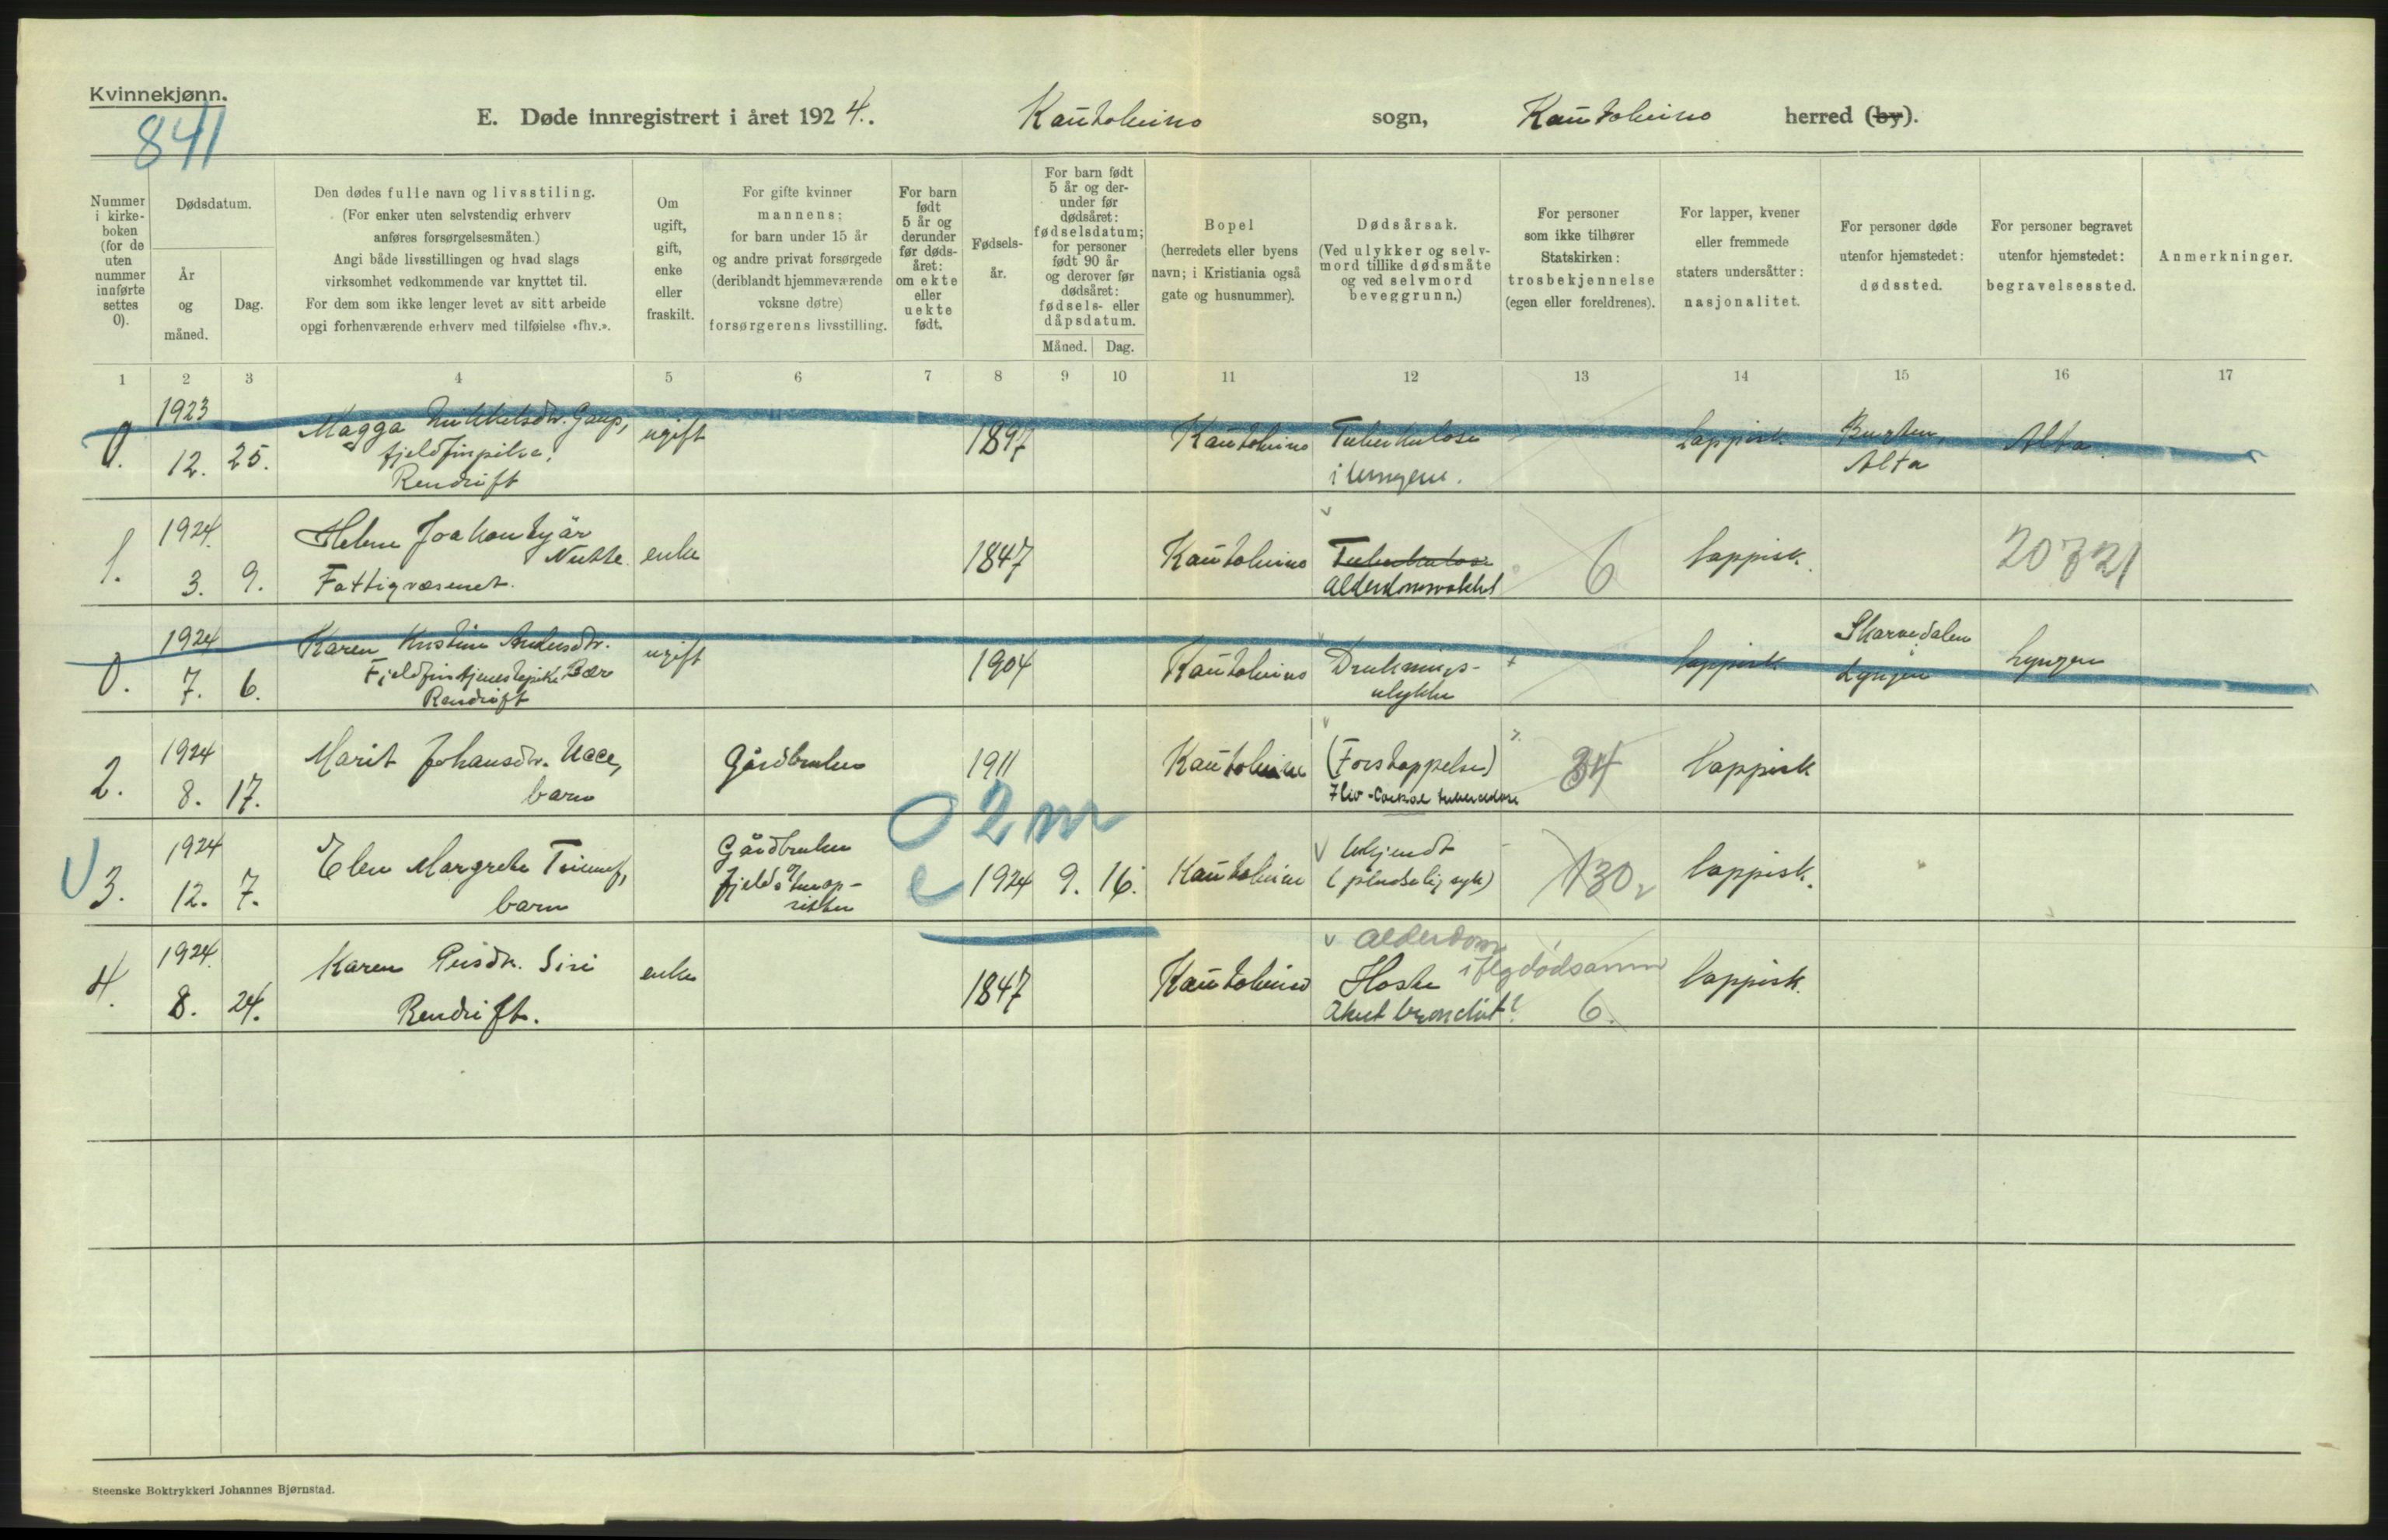 Kvinnekjønn.
841
E. Døde innregistrert i året 1924. Kautokeino sogn, Kautokeino herred (by).
Nummer i kirke-boken (for de uten nummer innførte settes 0).
Dødsdatum.
År og måned.
Dag.
Den dødes fulle navn og livsstiling.
(For enker uten selvstendig erhverv
anføres forsørgelsesmåten.)
Angi både livsstillingen og hvad slags
virksomhet vedkommende var knyttet til.
For dem som ikke lenger levet av sitt arbeide
opgi forhenværende erhverv med tilføielse «fhv.».
Om ugift, gift, enke eller fraskilt.
For gifte kvinner
mannens;
for barn under 15 år
og andre privat forsørgede
(deriblandt hjemmeværende
voksne døtre)
forsørgerens livsstilling.
For barn født 5 år og derunder før døds-året: om ekte eller uekte født.
Fødsels-år.
For barn født 5 år og der-under før dødsåret: fødselsdatum; for personer født 90 år og derover før dødsåret: fødsels- eller dåpsdatum.
Måned. Dag.
Bopel
(herredets eller byens
navn; i Kristiania også
gate og husnummer).
Dødsårsak.
(Ved ulykker og selv-
mord tillike dødsmåte
og ved selvmord
beveggrunn.)
For personer
som ikke tilhører
Statskirken:
trosbekjennelse
(egen eller foreldrenes).
For lapper, kvener
eller fremmede
staters undersåtter:
nasjonalitet.
For personer døde
utenfor hjemstedet:
dødssted.
For personer begravet
utenfor hjemstedet:
begravelsessted.
Anmerkninger.
1 2 3 4 5 6 7 8 9 10 11 12 13 14 15 16 17
0. 1923 12. 25. Magga Mikkelsdtr. Gaup, ugift 1897 Kautokeino Tuberkulose lappisk Alta
Rendrift i lungene. Alta
1. 1924. 3. 9. Helene enke 1847 Kautokeino Tuberkulose 6 lappisk. 20321
Fattigvæsenet.
0. 1924 7. 6. Karen Kristine Andersdtr. ugift 1904 Kautokeino Druknings- lappisk Lyngen Lyngen
Bær ulykke
Rendrift
2. 1924 8. 17. Marit Johansdtr. Gårdbruker 1911 Kautokeino (Forstoppelse) 34 lappisk
barn
0 2 m
3. 1924 12. 7. Elen Margrete Triumf, Gårdbruker e 1924 9. 16. Kautokeino Ukjendt 130 lappisk.
barn (pludselig syk)
4. 1924. 8. 24. Karen Siri enke 1847 Kautokeino Alderdom lappisk.
Rendrift. Hoste
Akut bronchit? 6.
Steenske Boktrykkeri Johannes Bjørnstad.